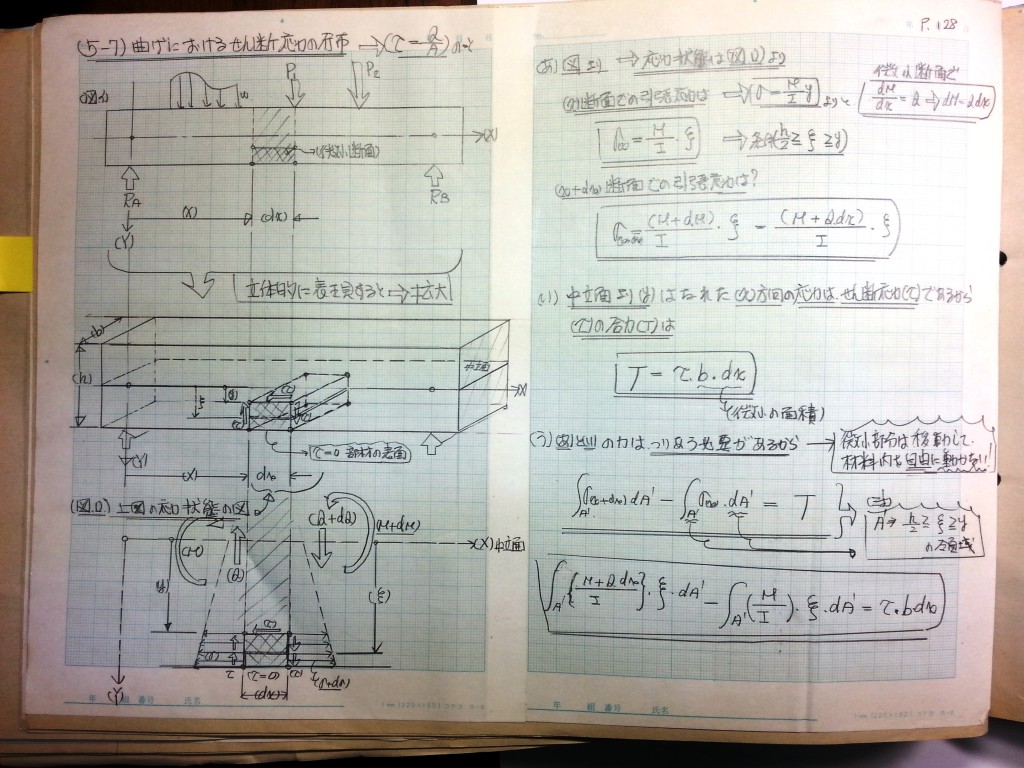 P. 128
(5-7) 曲げにおけるせん断応力の分布 → (τ = Q/A)
P1
P2
(図イ)
w
(X)
(微小断面)
RA
RB
(x)
(dx)
(Y)
立体的に表現すると → 拡大
(b)
(h)
中立面
(X)
(y)
ξ
(τ)
τ=0 部材の表面
(Y)
(X)
dx
(図ロ) 上図の応力状態の図
(M)
(Q)
(Q+dQ)
(M+dM)
(X) 中立面
(y)
(ξ)
(τ)
τ
(τ=0)
(τ)
(σ+dσ)
(dx)
(Y)
(あ) (図より) → 応力状態は(図ロ)より
(x)断面での引張応力は → (σ = M/I y) より
微小断面で
dM/dx = Q → dM = Qdx
σx = M/I · ξ → 条件(h/2 ≧ ξ ≧ y)
(x+dx)断面での引張応力は?
σx+dx = (M+dM)/I · ξ = (M+Qdx)/I · ξ
(い) 中立面より(y)はなれた(x)方向の応力は、せん断応力(τ)であるから
(τ)の合力(T)は
T = τ.b.dx
(微小の面積)
(う) のカは、つりあう必要があるから → 微小部分は移動して、
材料内を自由に動かない!
∫A' σ(x+dx) dA' − ∫A' σx. dA' = T
(注)
A' → h/2 ≧ ξ ≧ y
の全面域
∫A' {(M+Qdx)/I} · ξ · dA' − ∫A' (M/I) · ξ · dA' = τ.bdx
年 組 番号 氏名
年 組 番号 氏名